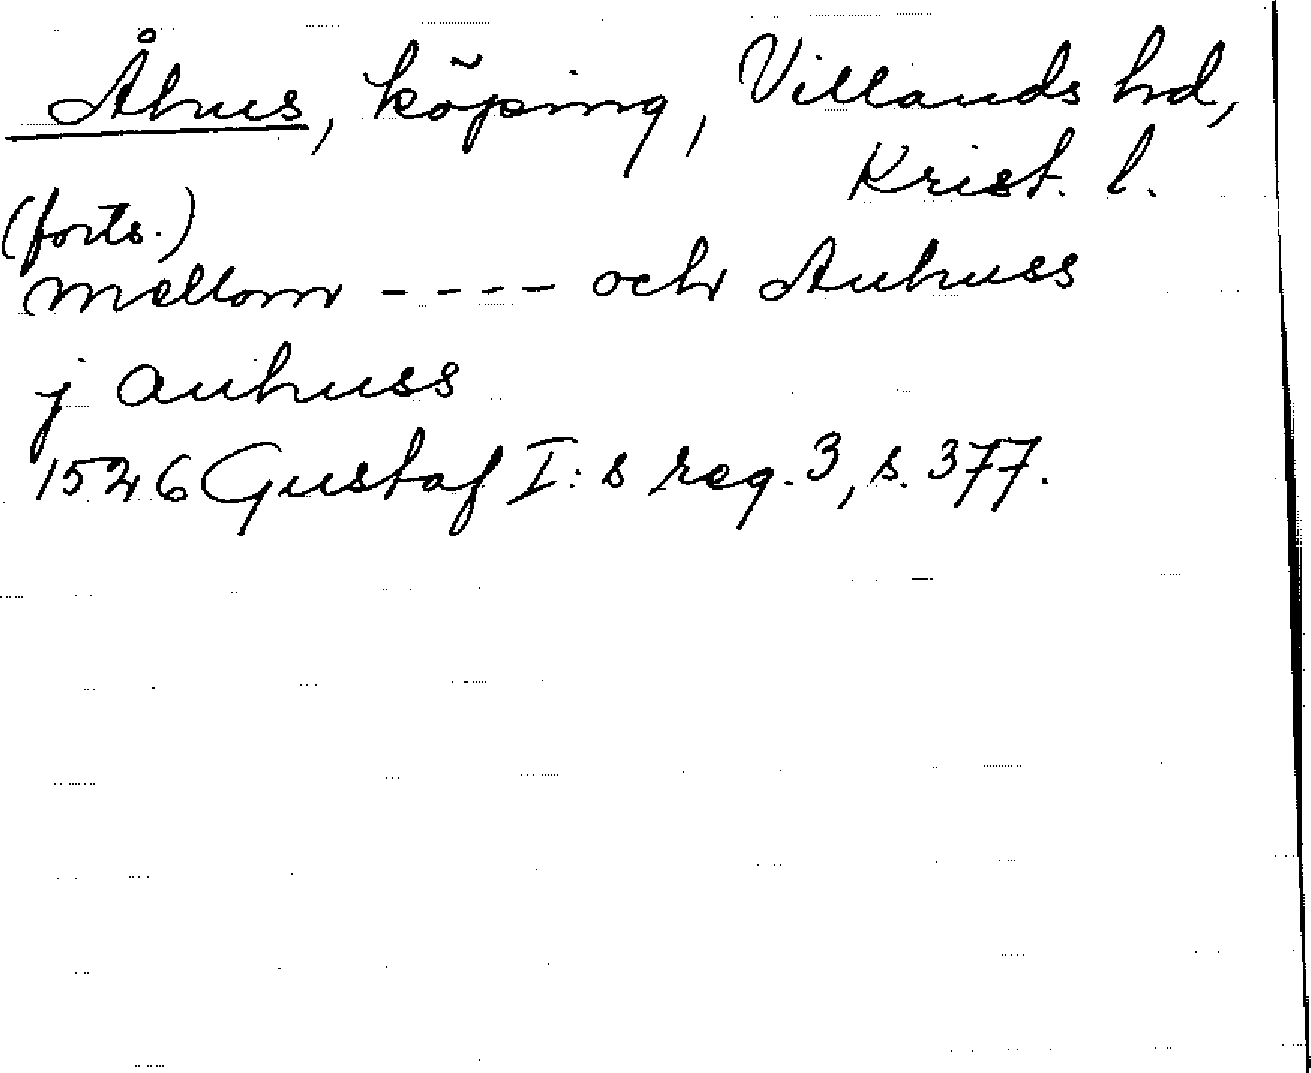 Åhus, köping, Villands hd,
Krist. l.
(forts.)
mellom ---- och Auhuss
j auhuss
1526 Gustaf I:s reg. 3, s. 377.